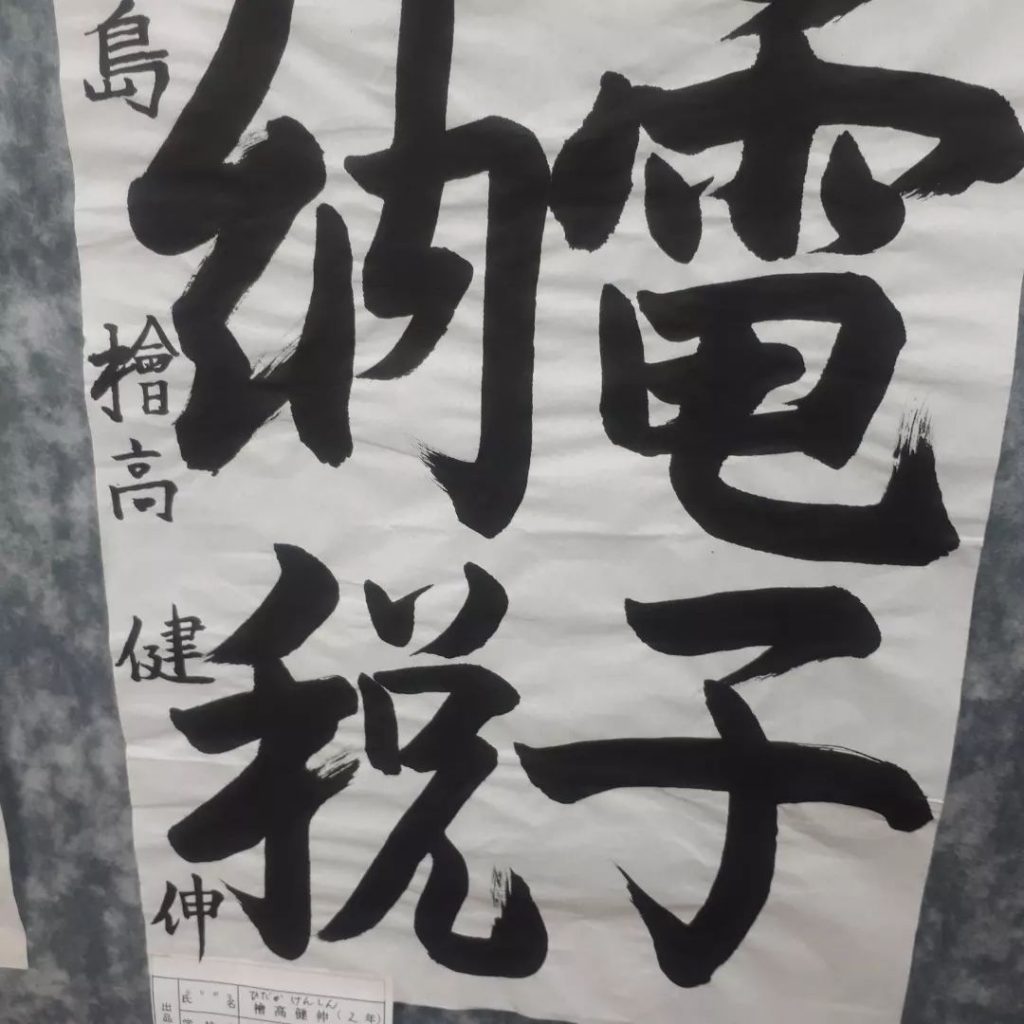 電子
納税
島 檜高 健伸
氏名
ひだか けんしん
檜高健伸(2年)
出品